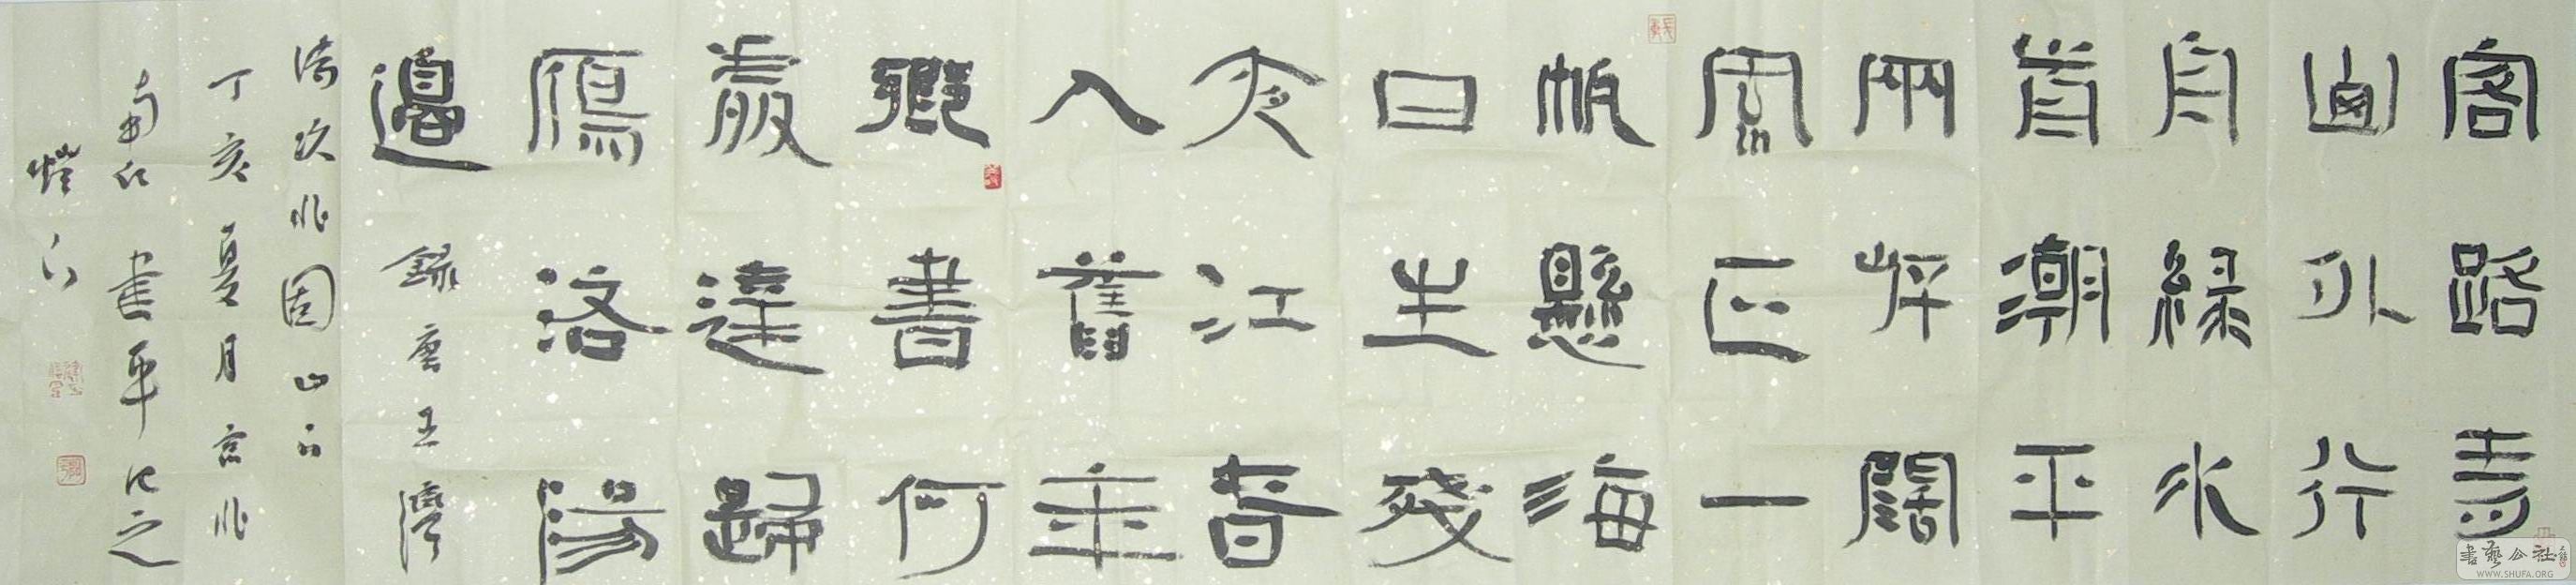 客路青
山外行
舟綠水
前潮平
兩岸闊
風正一
帆懸海
日生殘
夜江春
入舊年
鄉書何
處達歸
鴈洛陽
邊 錄唐王灣
詩次北固山下
丁亥夏月京北
南 書 之
燈下
書藝公社
WWW.SHUFA.ORG